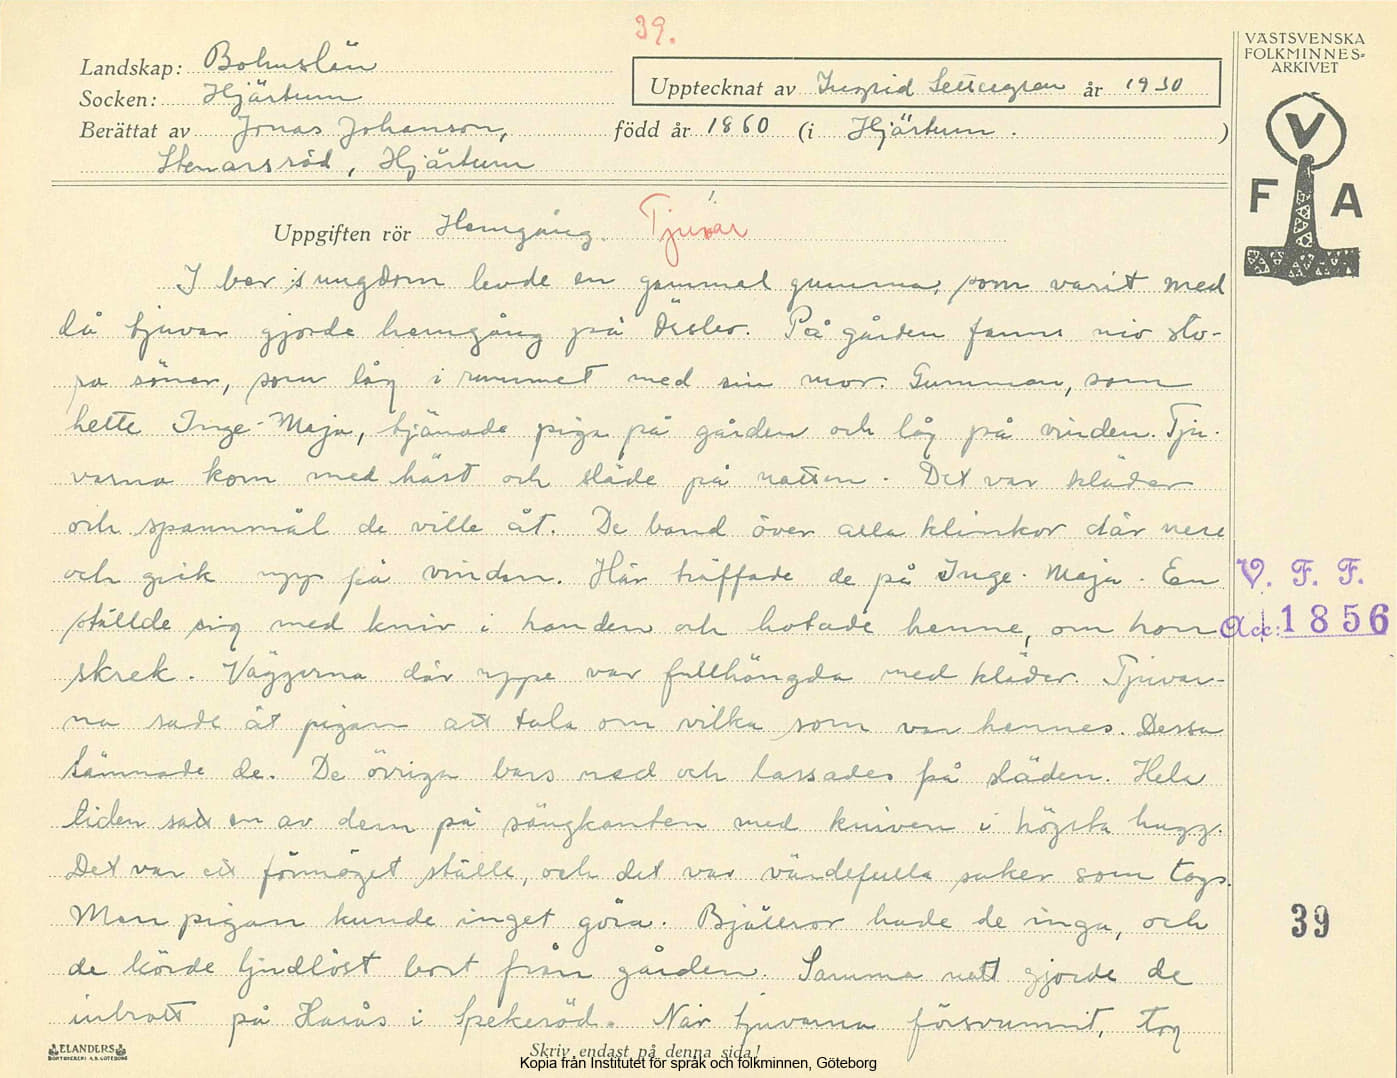 39.
VÄSTSVENSKA
FOLKMINNES-
ARKIVET
Landskap: Bohuslän
Socken: Hjärtum
Upptecknat av Ingrid år 1930
Berättat av Jonas Johanson, född år 1860 (i Hjärtum. )
Stenarsröd, Hjärtum
V
F A
Uppgiften rör Hemgång. Tjuvar
I bers ungdom levde en gammal gumma, som varit med
då tjuvar gjorde hemgång på. På gården fanns nio sto-
ra söner, som låg i rummet med sin mor. Gumman, som
hette Inge-Maja, tjänade piga på gården och låg på vinden. Tju-
varna kom med häst och släde på natten. Det var kläder
och spannmål de ville åt. De band över alla klinkor där nere
och gick upp på vinden. Här träffade de på Inge-Maja. En
ställde sig med kniv i handen och hotade henne, om hon
skrek. Väggarna där uppe var fullhängda med kläder. Tjuvar-
na sade åt pigan att tala om vilka som var hennes. Dessa
lämnade de. De övriga bars ned och lassades på släden. Hela
tiden satt en av dem på sängkanten med kniven i högsta hugg.
Det var ett förmöget ställe, och det var värdefulla saker som togs.
Men pigan kunde inget göra. Bjällror hade de inga, och
de körde ljudlöst bort från gården. Samma natt gjorde de
inbrott på Harås i Spekeröd. När tjuvarna försvunnit, tog
V. F. F.
Acc: 1856
39
ELANDERS
BOKTRYCKERI A.B. GÖTEBORG
Skriv endast på denna sida!
Kopia från Institutet för språk och folkminnen, Göteborg